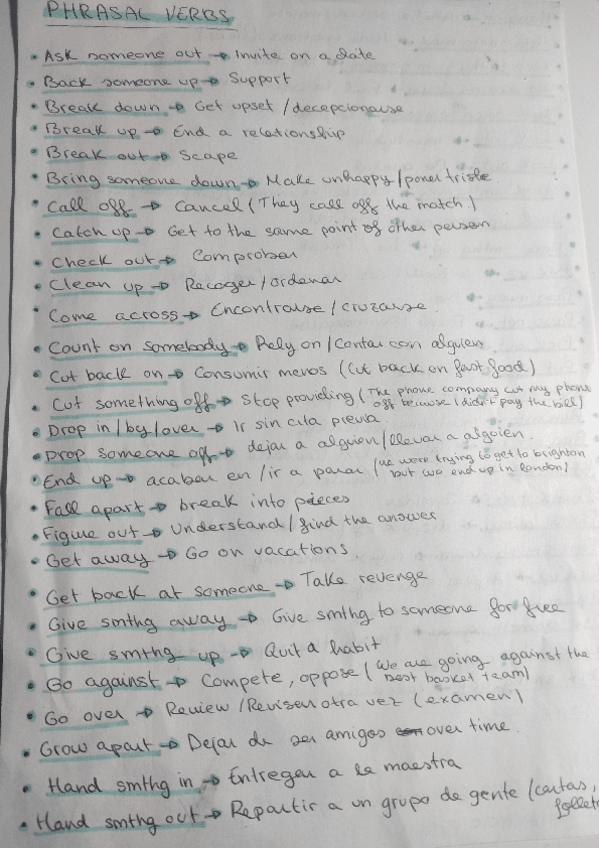 PHRASAL VERBS
• Ask someone out → Invite on a date
• Back someone up → Support
• Break down → Get upset / decepcionarse
• Break up → End a relationship
• Break out → Scape
• Bring someone down → Make unhappy / poner triste
• Call off → Cancel (They call off the match)
• Catch up → Get to the same point of other person
• Check out → Comprobar
• Clean up → Recoger / ordenar
• Come across → Encontrarse / cruzarse
• Count on somebody → Rely on / Contar con alguien
• Cut back on → Consumir menos (Cut back on fast food)
• Cut something off → Stop providing (The phone company cut my phone
off because I didn't pay the bill)
• Drop in / by / over → Ir sin cita previa
• Drop someone off → dejar a alguien / llevar a alguien.
• End up → acabar en / ir a parar (we were trying to get to brighton
but we end up in london)
• Fall apart → break into pieces
• Figure out → Understand / find the answer
• Get away → Go on vacations
• Get back at someone → Take revenge
• Give smthg away → Give smthg to someone for free
• Give smthg up → Quit a habit
• Go against → Compete, oppose (We are going against the
best basket team)
• Go over → Review / Revisar otra vez (examen)
• Grow apart → Dejar de ser amigos over time.
• Hand smthg in → Entregar a la maestra
• Hand smthg out → Repartir a un grupo de gente (cartas,